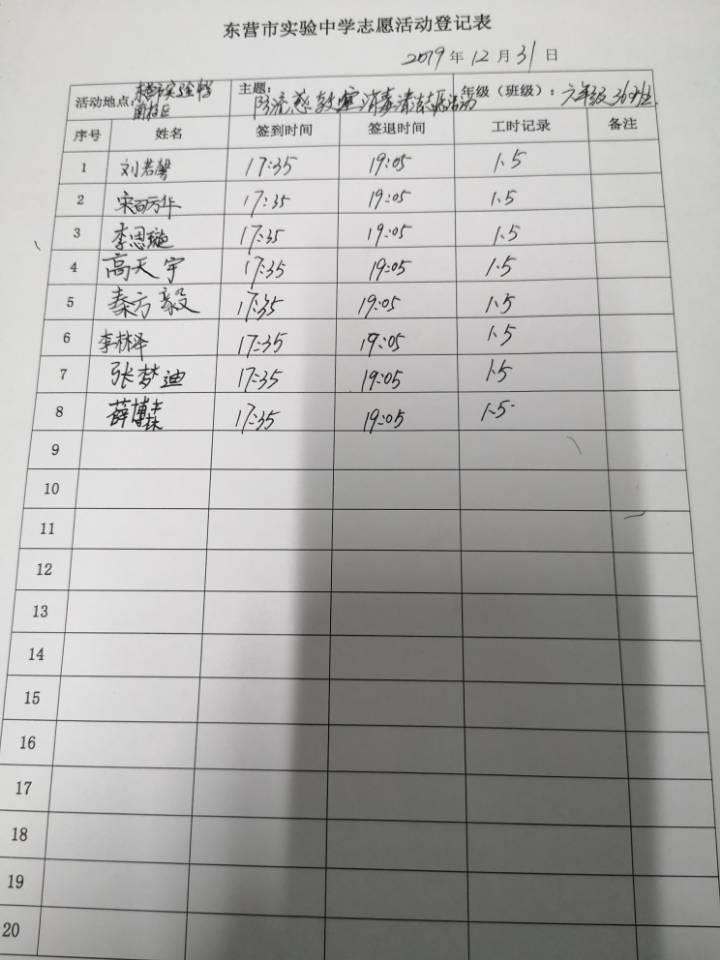 东营市实验中学志愿活动登记表
2019年12月31日
活动地点：东营市实验中学 主题：防流感教室消毒清洁志愿活动 年级（班级）：六年级36班
序号 姓名 签到时间 签退时间 工时记录 备注
1 刘若馨 17:35 19:05 1.5
2 宋百万华 17:35 19:05 1.5
3 李恩璇 17:35 19:05 1.5
4 高天宇 17:35 19:05 1.5
5 秦方毅 17:35 19:05 1.5
6 李林泽 17:35 19:05 1.5
7 张梦迪 17:35 19:05 1.5
8 薛博森 17:35 19:05 1.5
9
10
11
12
13
14
15
16
17
18
19
20